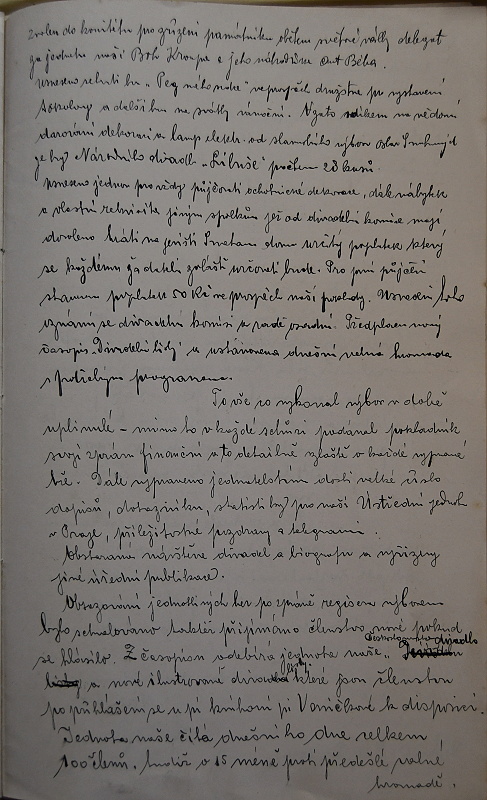 zvolen do komitétu pro zřízení památníku obětem světové války delegát
za jednotu naší Boh. Kroupa a jeho náhradníkem Ant. Běha.
Usneseno sehráti hru „ " ve prospěch družstva pro vystavení
Sokolovny a další hru na svátky vánoční. Vzato s díkem na vědomí
darování dekorací a lamp elektr. od slavného výboru
je hry Národního divadla „Libuše" počtem 28 kusů.
usneseno jednou pro vždy půjčovati ochotnické dekorace, dále nábytek
a vlastní rekvisita jiným spolkům jež od divadelní komise mají
dovoleno hráti na jevišti Smetan. domu určitý poplatek který
se každému žadateli zvláště určovati bude. Pro první půjčení
stanoven poplatek 50 Kč ve prospěch naší pokladny. Usnesení toto
oznámí se divadelní komisi a radě osvětové. Předplacen nový
časopis „Divadelní listy" a ustanovena dnešní valná hromada
s potřebným programem.
To vše co vykonal výbor v době
uplynulé – mimo to v každé schůzi podával pokladník
svoji zprávu finanční a to detailně zvláště o každé vypravené
hře. Dále vypraveno jednatelstvím dosti velké číslo
dopisů, dotazníků, statistiky pro naši Ústřední jednotu
v Praze, příležitostné pozdravy a telegramy.
Obstarána návštěva divadel a biografu a vyřízeny
jiné úřední publikace.
Obsazování jednotlivých her po zprávě režisera výborem
bylo schvalováno taktéž přijímáno členstvo nové pokud
se hlásilo. Z časopisů odebírá jednota naše „Československé divadlo
a nové ilustrované divadelní listy které jsou členstvu
po přihlášení se u pí knihovní Vaníčkové k disposici.
Jednota naše čítá dnešního dne celkem
100 členů, tudíž o 15 méně proti předešlé valné
hromadě.